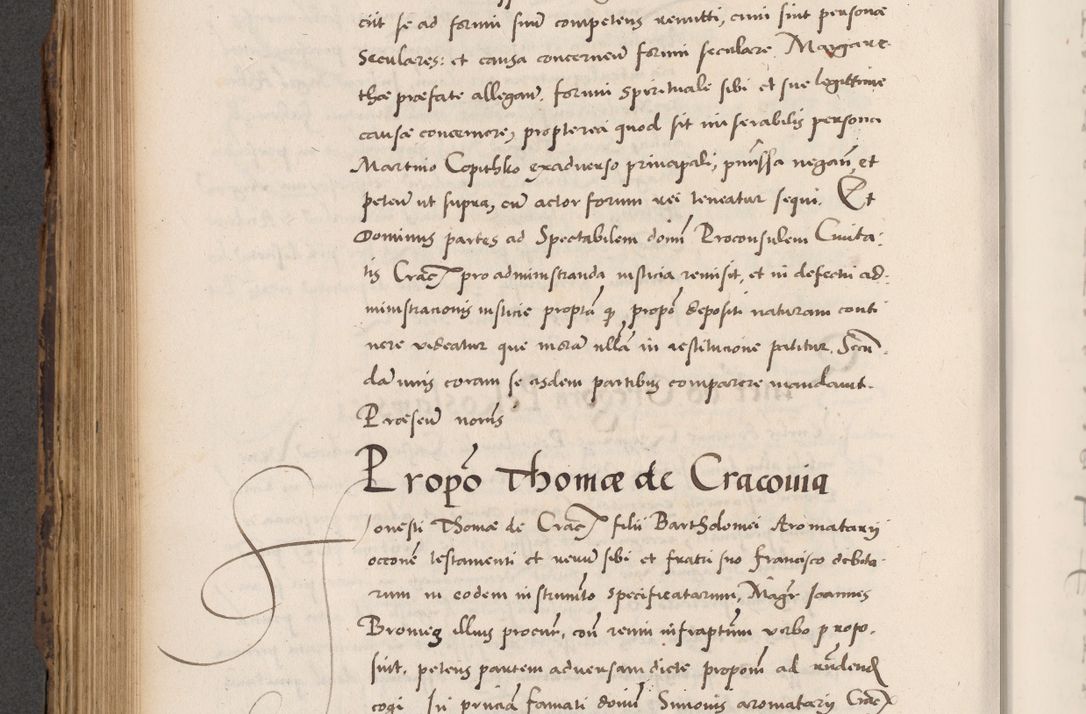 ciit se ad forum suum competens remitti, cum sint personae
Seculares: et causa concernens forum seculare. Margare-
thae praefate allegans. forum spirituale sibi et sue legittime
causae concernere, propterea quod sit miserabilis persona
Martino Copithko exadverso principali, praemissa negans, et
petens ut supra, cum actor forum rei teneatur sequi. Et
Dominus partes ad Spectabilem domi Proconsulem Civita-
tis Crac pro administranda iusticia remisit, et in defectu ad-
ministracionis iusticie propterea quod propo depositi naturam conti
nere videatur que moram ullam in restitucione patitur. Secun-
da iuris coram se eisdem partibus comparere mandavit.
Praesen notariis
Propo Thomae de Cracovia
Honesti Thomae de Crac filii Bartholomei Aromatarii
occone testamenti et rerum sibi et fratri suo Francisco debita-
rum in eodem instrumento specificatarum, Magr Joannes
Bromierz illius procur, con reum infrascriptum verbo propo-
suit, petens partem adversam dicte proponi ad respondend
cogi In principa famati domi Simonis aromatarii Crac